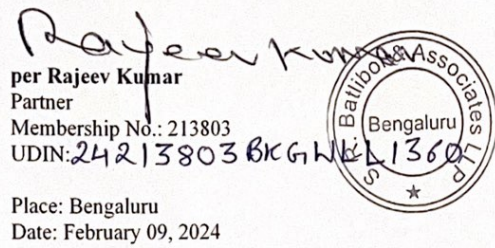 Rajeev Kumar
per Rajeev Kumar
Partner
Membership No.: 213803
UDIN:24213803BKGWLL1360
S. R. Batliboi & Associates LLP
Bengaluru
Place: Bengaluru
Date: February 09, 2024